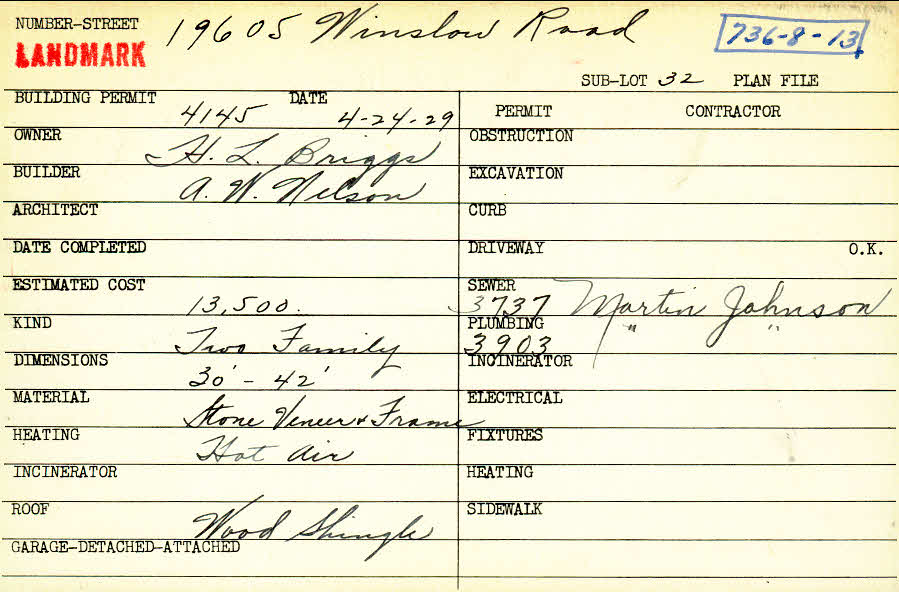 NUMBER-STREET 19605 Winslow Road
LANDMARK
736-8-13
SUB-LOT 32 PLAN FILE
BUILDING PERMIT 4145 DATE 4-24-29
PERMIT CONTRACTOR
OWNER H. L. Briggs
OBSTRUCTION
BUILDER A. W. Nelson
EXCAVATION
ARCHITECT
CURB
DATE COMPLETED
DRIVEWAY O.K.
ESTIMATED COST 13,500.
SEWER 3737 Martin Johnson
KIND Two Family
PLUMBING 3903 " "
DIMENSIONS 30' - 42'
INCINERATOR
MATERIAL Stone Veneer & Frame
ELECTRICAL
HEATING Hot Air
FIXTURES
INCINERATOR
HEATING
ROOF Wood Shingle
SIDEWALK
GARAGE-DETACHED-ATTACHED